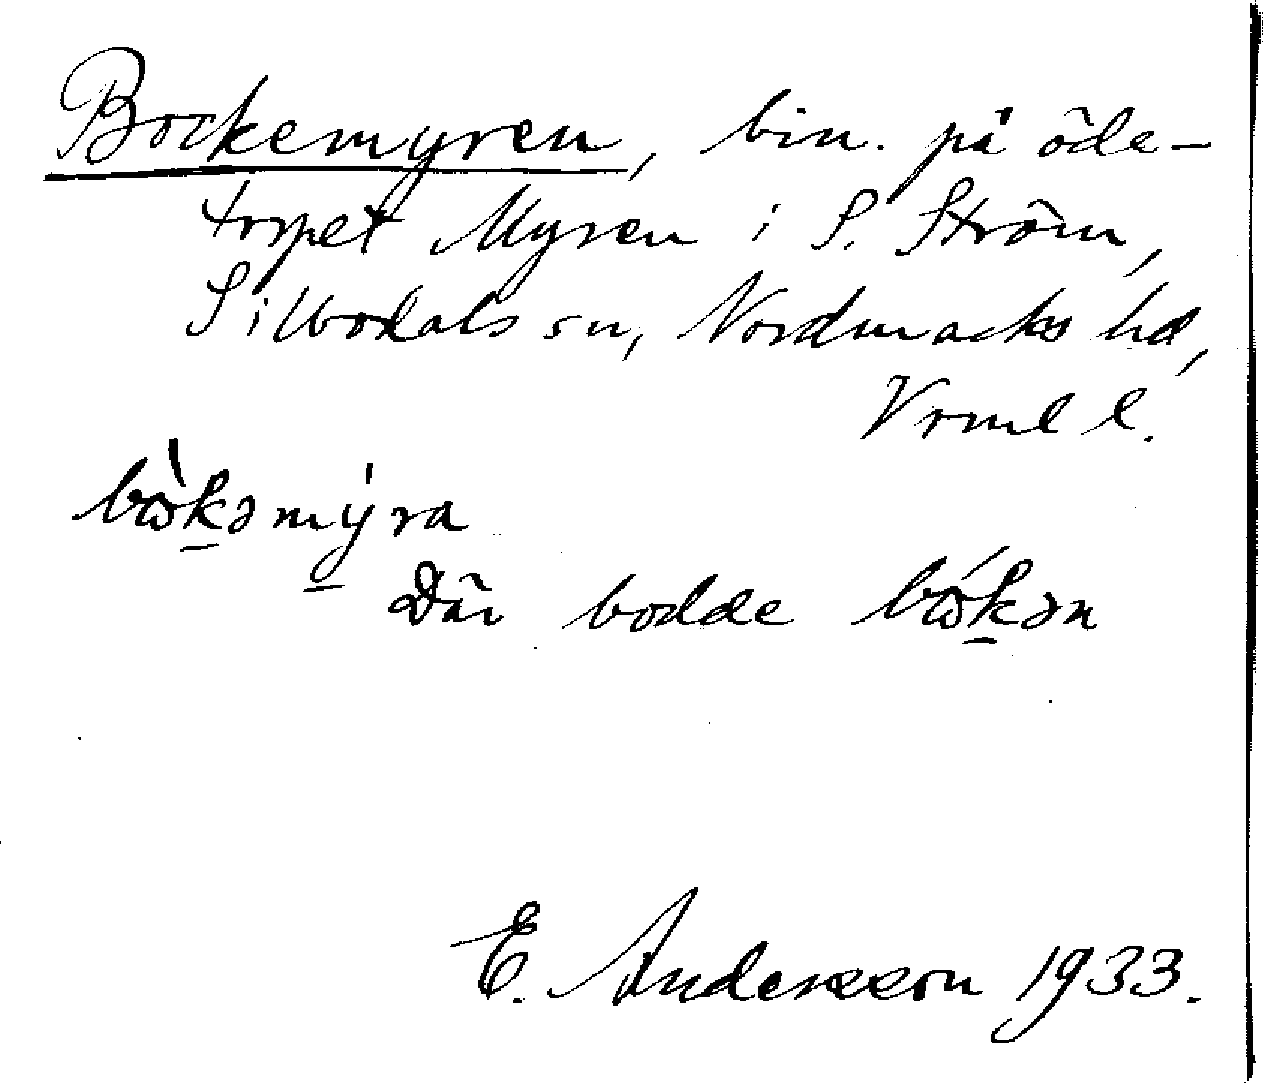 Bockemyren, bin. på öde-
torpet Myren i S. Ström,
Silbodals sn, Nordmarks hd,
Vrml l.
bɷ̀kəmýra
Där bodde bɷ́kən
E. Andersson 1933.